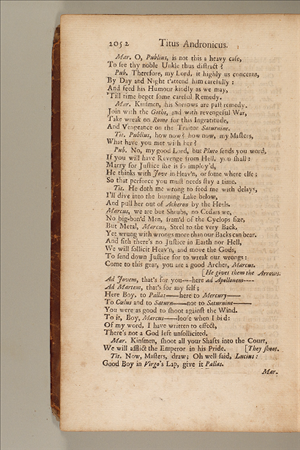 2052 Titus Andronicus.
Mar. O, Publius, is not this a heavy case,
To see thy noble Unkle thus distract?
Pub. Therefore, my Lord, it highly us concerns,
By Day and Night t'attend him carefully:
And feed his Humour kindly as we may,
'Till time beget some careful Remedy.
Mar. Kinsmen, his Sorrows are past remedy.
Join with the Goths, and with revengeful War,
Take wreak on Rome for this Ingratitude,
And Vengeance on the Traitor Saturnine.
Tit. Publius, how now? how now, my Masters,
What have you met with her?
Pub. No, my good Lord, but Pluto sends you word,
If you will have Revenge from Hell, you shall:
Marry for Justice she is so imploy'd,
He thinks with Jove in Heav'n, or some where else;
So that perforce you must needs stay a time.
Tit. He doth me wrong to feed me with delays,
I'll dive into the burning Lake below,
And pull her out of Acharon by the Heels.
Marcus, we are but Shrubs, no Cedars we,
No big-bon'd Men, fram'd of the Cyclops size,
But Metal, Marcus, Steel to the very Back,
Yet wrung with wrongs more than our Backs can bear.
And sith there's no Justice in Earth nor Hell,
We will sollicit Heav'n, and move the Gods,
To send down Justice for to wreak our wrongs:
Come to this gear, you are a good Archer, Marcus.
[He gives them the Arrows.
Ad Jovem, that's for you—here ad Apollonem—
Ad Martem, that's for my self;
Here Boy, to Pallas—here to Mercury—
To Cælus and to Saturn—not to Saturnine—
You were as good to shoot against the Wind.
To it, Boy, Marcus—loose when I bid:
Of my word, I have written to effect,
There's not a God left unsollicited.
Mar. Kinsmen, shoot all your Shafts into the Court,
We will afflict the Emperor in his Pride. [They shoot.
Tit. Now, Masters, draw; Oh well said, Lucius:
Good Boy in Virgo's Lap, give it Pallas.
Mar.